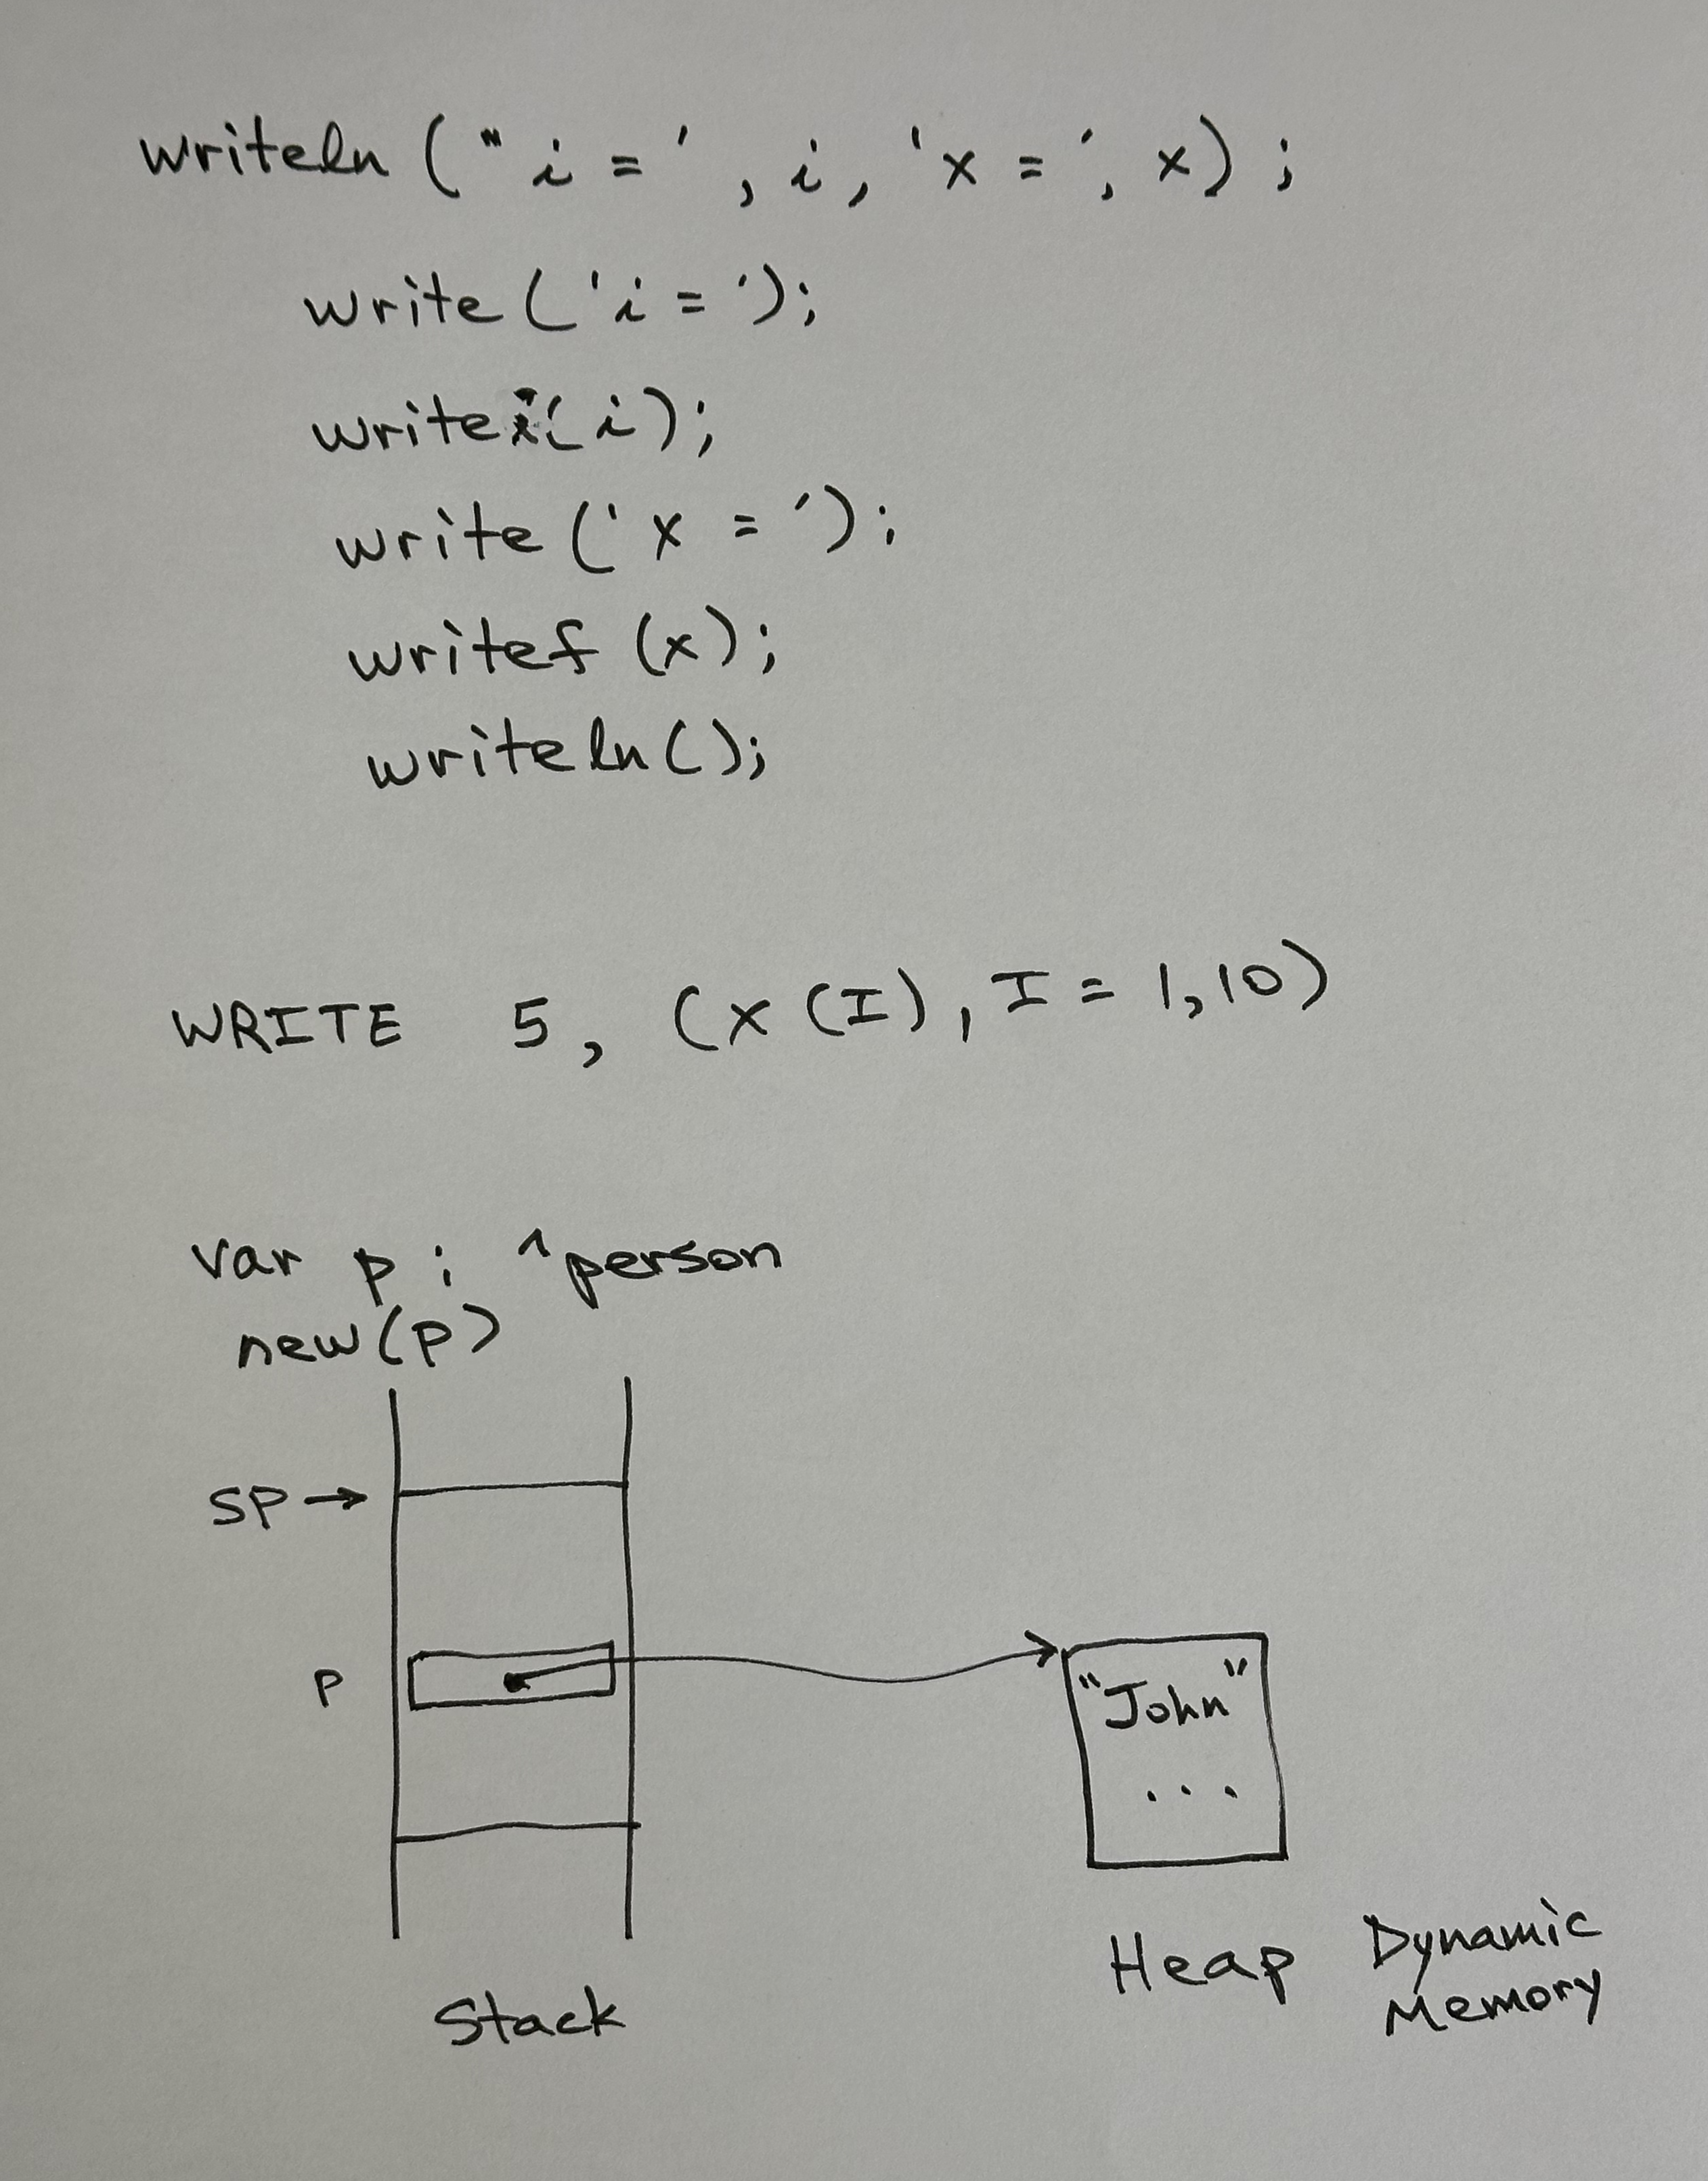 writeln ("i = ', i, 'x = ', x) ;
write ('i = ');
writei(i);
write ('x = ');
writef (x);
writeln ();
WRITE 5, (X (I), I = 1,10)
var p : ^person
new(p)
SP →
P
"John"
...
Stack
Heap
Dynamic
Memory